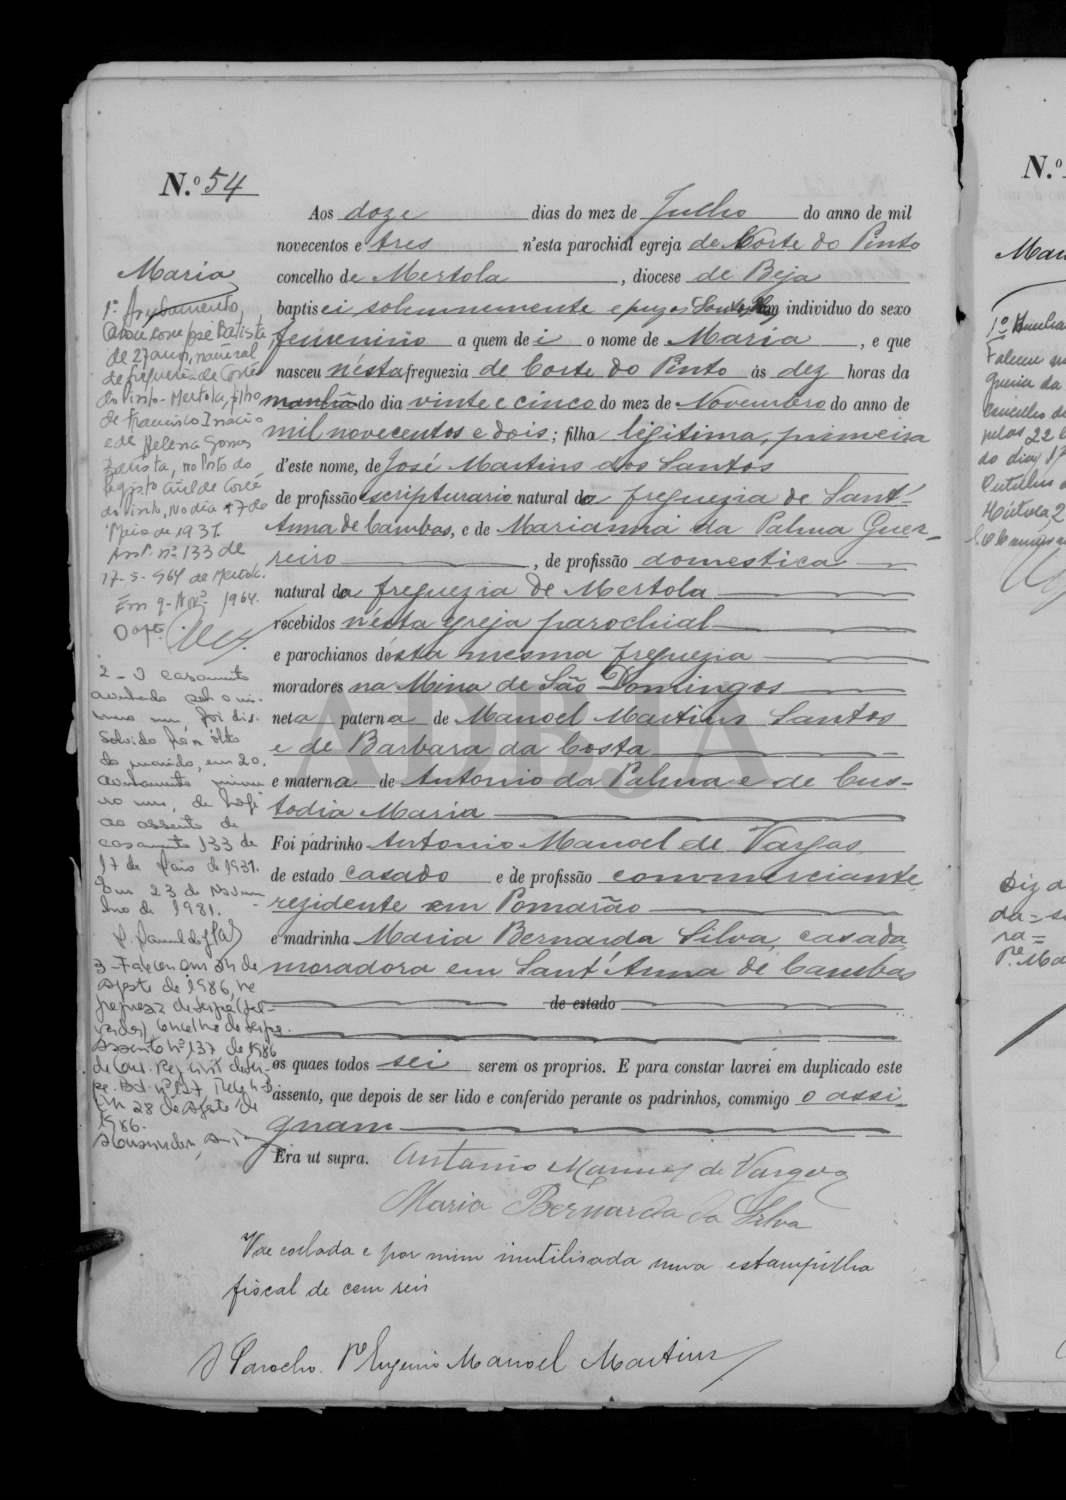 N.º 54
Aos doze dias do mez de Julho do anno de mil
novecentos e tres n'esta parochial egreja de Corte do Pinto
concelho de Mertola, diocese de Beja
baptisei solemnemente e puz os Santos um individuo do sexo
femenino a quem dei o nome de Maria, e que
nasceu n'ésta freguezia de Corte do Pinto ás dez horas da
manhã do dia vinte e cinco do mez de Novembro do anno de
mil novecentos e dois; filha legitima, primeira
d'este nome, de José Martins dos Santos
de profissão escripturario natural da freguezia de Sant'
Anna de Cambas, e de Marianna da Palma Guer-
reiro, de profissão domestica
natural da freguezia de Mertola
recebidos n'ésta egreja parochial
e parochianos désta mesma freguezia
moradores na Mina de São Domingos
neta paterna de Manoel Martins Santos
e de Barbara da Costa
e materna de Antonio da Palma e de Cus-
todia Maria
Foi padrinho Antonio Manoel de Vargas
de estado casado e de profissão commerciante
rezidente em Pomarão
e madrinha Maria Bernarda Silva, casada,
moradora em Sant'Anna de Cambas
de estado
os quaes todos sei serem os proprios. E para constar lavrei em duplicado este
assento, que depois de ser lido e conferido perante os padrinhos, commigo o assi-
gnam
Era ut supra. Antonio Manuel de Vargas
Maria Bernarda da Silva
Vae collada e por mim inutilisada uma estampilha
fiscal de cem reis
O Parocho. Pe Eugenio Manoel Martins
Maria
1º
Casou com José Batista,
de 27 anos, natural
da freguesia de Corte
do Pinto - Mertola, filho
de Francisco Inacio
e de Helena Gomes
Batista, no Posto do
Registo Civil de Corte
do Pinto, no dia 17 de
Maio de 1931.
Ass. nº 133 de
17-5-964 de Mertola.
Em 9- 1964.
2 - O casamento
averbado sob o nú-
mero um, foi dis-
solvido por óbito
do marido, em 20.
averbamento número
um, de hoje
ao assento de
casamento 133 de
17 de Maio de 1931.
Em 23 de Novem-
bro de 1981.
3 - Faleceu em 24 de
Agosto de 1986, na
freguesia de Serpa (Sal-
vador), Concelho de Serpa.
Assento nº 137 de 1986
da Cons. Reg. Civil de Ser-
pa.
Em 28 de Agosto de
1986.
ADBJA
N.º
1º
Faleceu